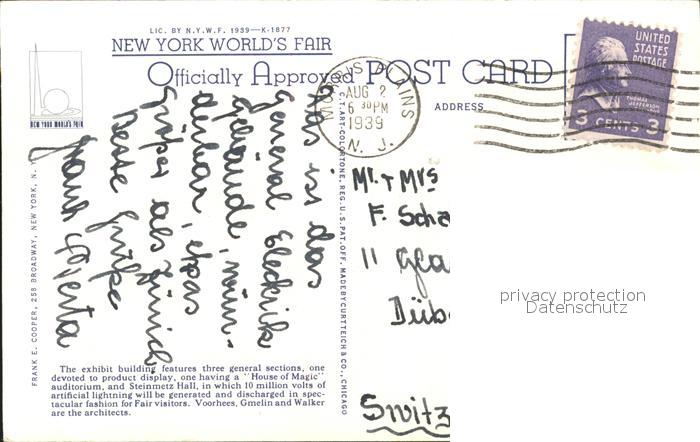 LIC. BY N.Y.W.F. 1939—K-1877
NEW YORK WORLD'S FAIR
Officially Approved POST CARD
NEW YORK WORLD'S FAIR
ADDRESS
MORRIS PLAINS
AUG 2
6 30 PM
1939
N. J.
UNITED
STATES
POSTAGE
THOMAS
JEFFERSON
3 CENTS 3
Das ist das
General Electrik
Gebäude, wun-
derbar, etwas
größer als Zürich,
beste Grüße
Frank
Mr. + Mrs
F. Scha
11
Düb
Switz
privacy protection
Datenschutz
FRANK E. COOPER, 258 BROADWAY, NEW YORK, N. Y.
C.T. ART-COLORTONE, REG. U.S. PAT. OFF. MADE BY CURT TEICH & CO., CHICAGO
The exhibit building features three general sections, one
devoted to product display, one having a "House of Magic"
auditorium, and Steinmetz Hall, in which 10 million volts of
artificial lightning will be generated and discharged in spec-
tacular fashion for Fair visitors. Voorhees, Gmelin and Walker
are the architects.